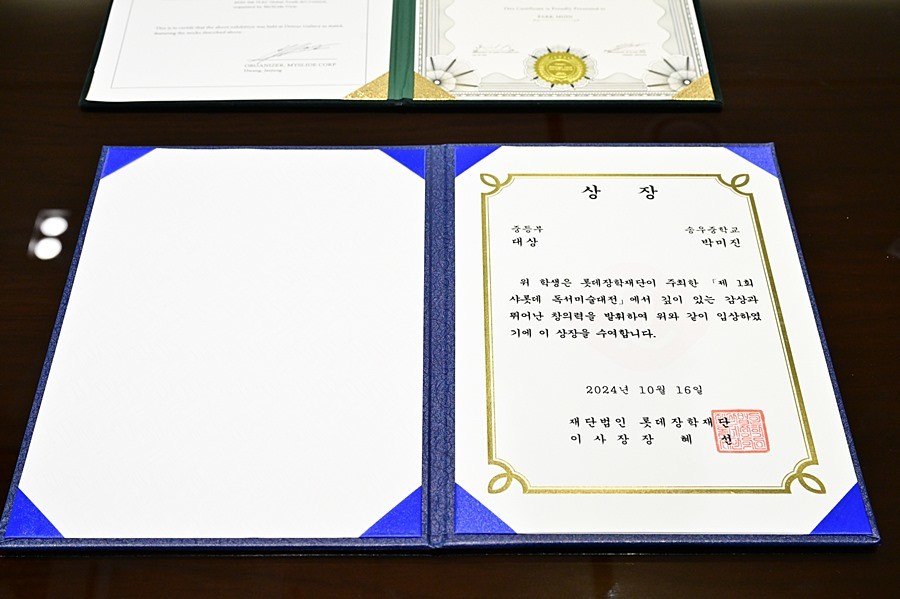 This Certificate is Proudly Presented to
ORGANIZER, MYSLIDE CORP
상 장
중등부 송우중학교
대상 박미진
위 학생은 롯데장학재단이 주최한 「제 1회
샤롯데 독서미술대전」에서 깊이 있는 감상과
뛰어난 창의력을 발휘하여 위와 같이 입상하였
기에 이 상장을 수여합니다.
2024년 10월 16일
재단법인 롯데장학재단
이사장 장 혜 선